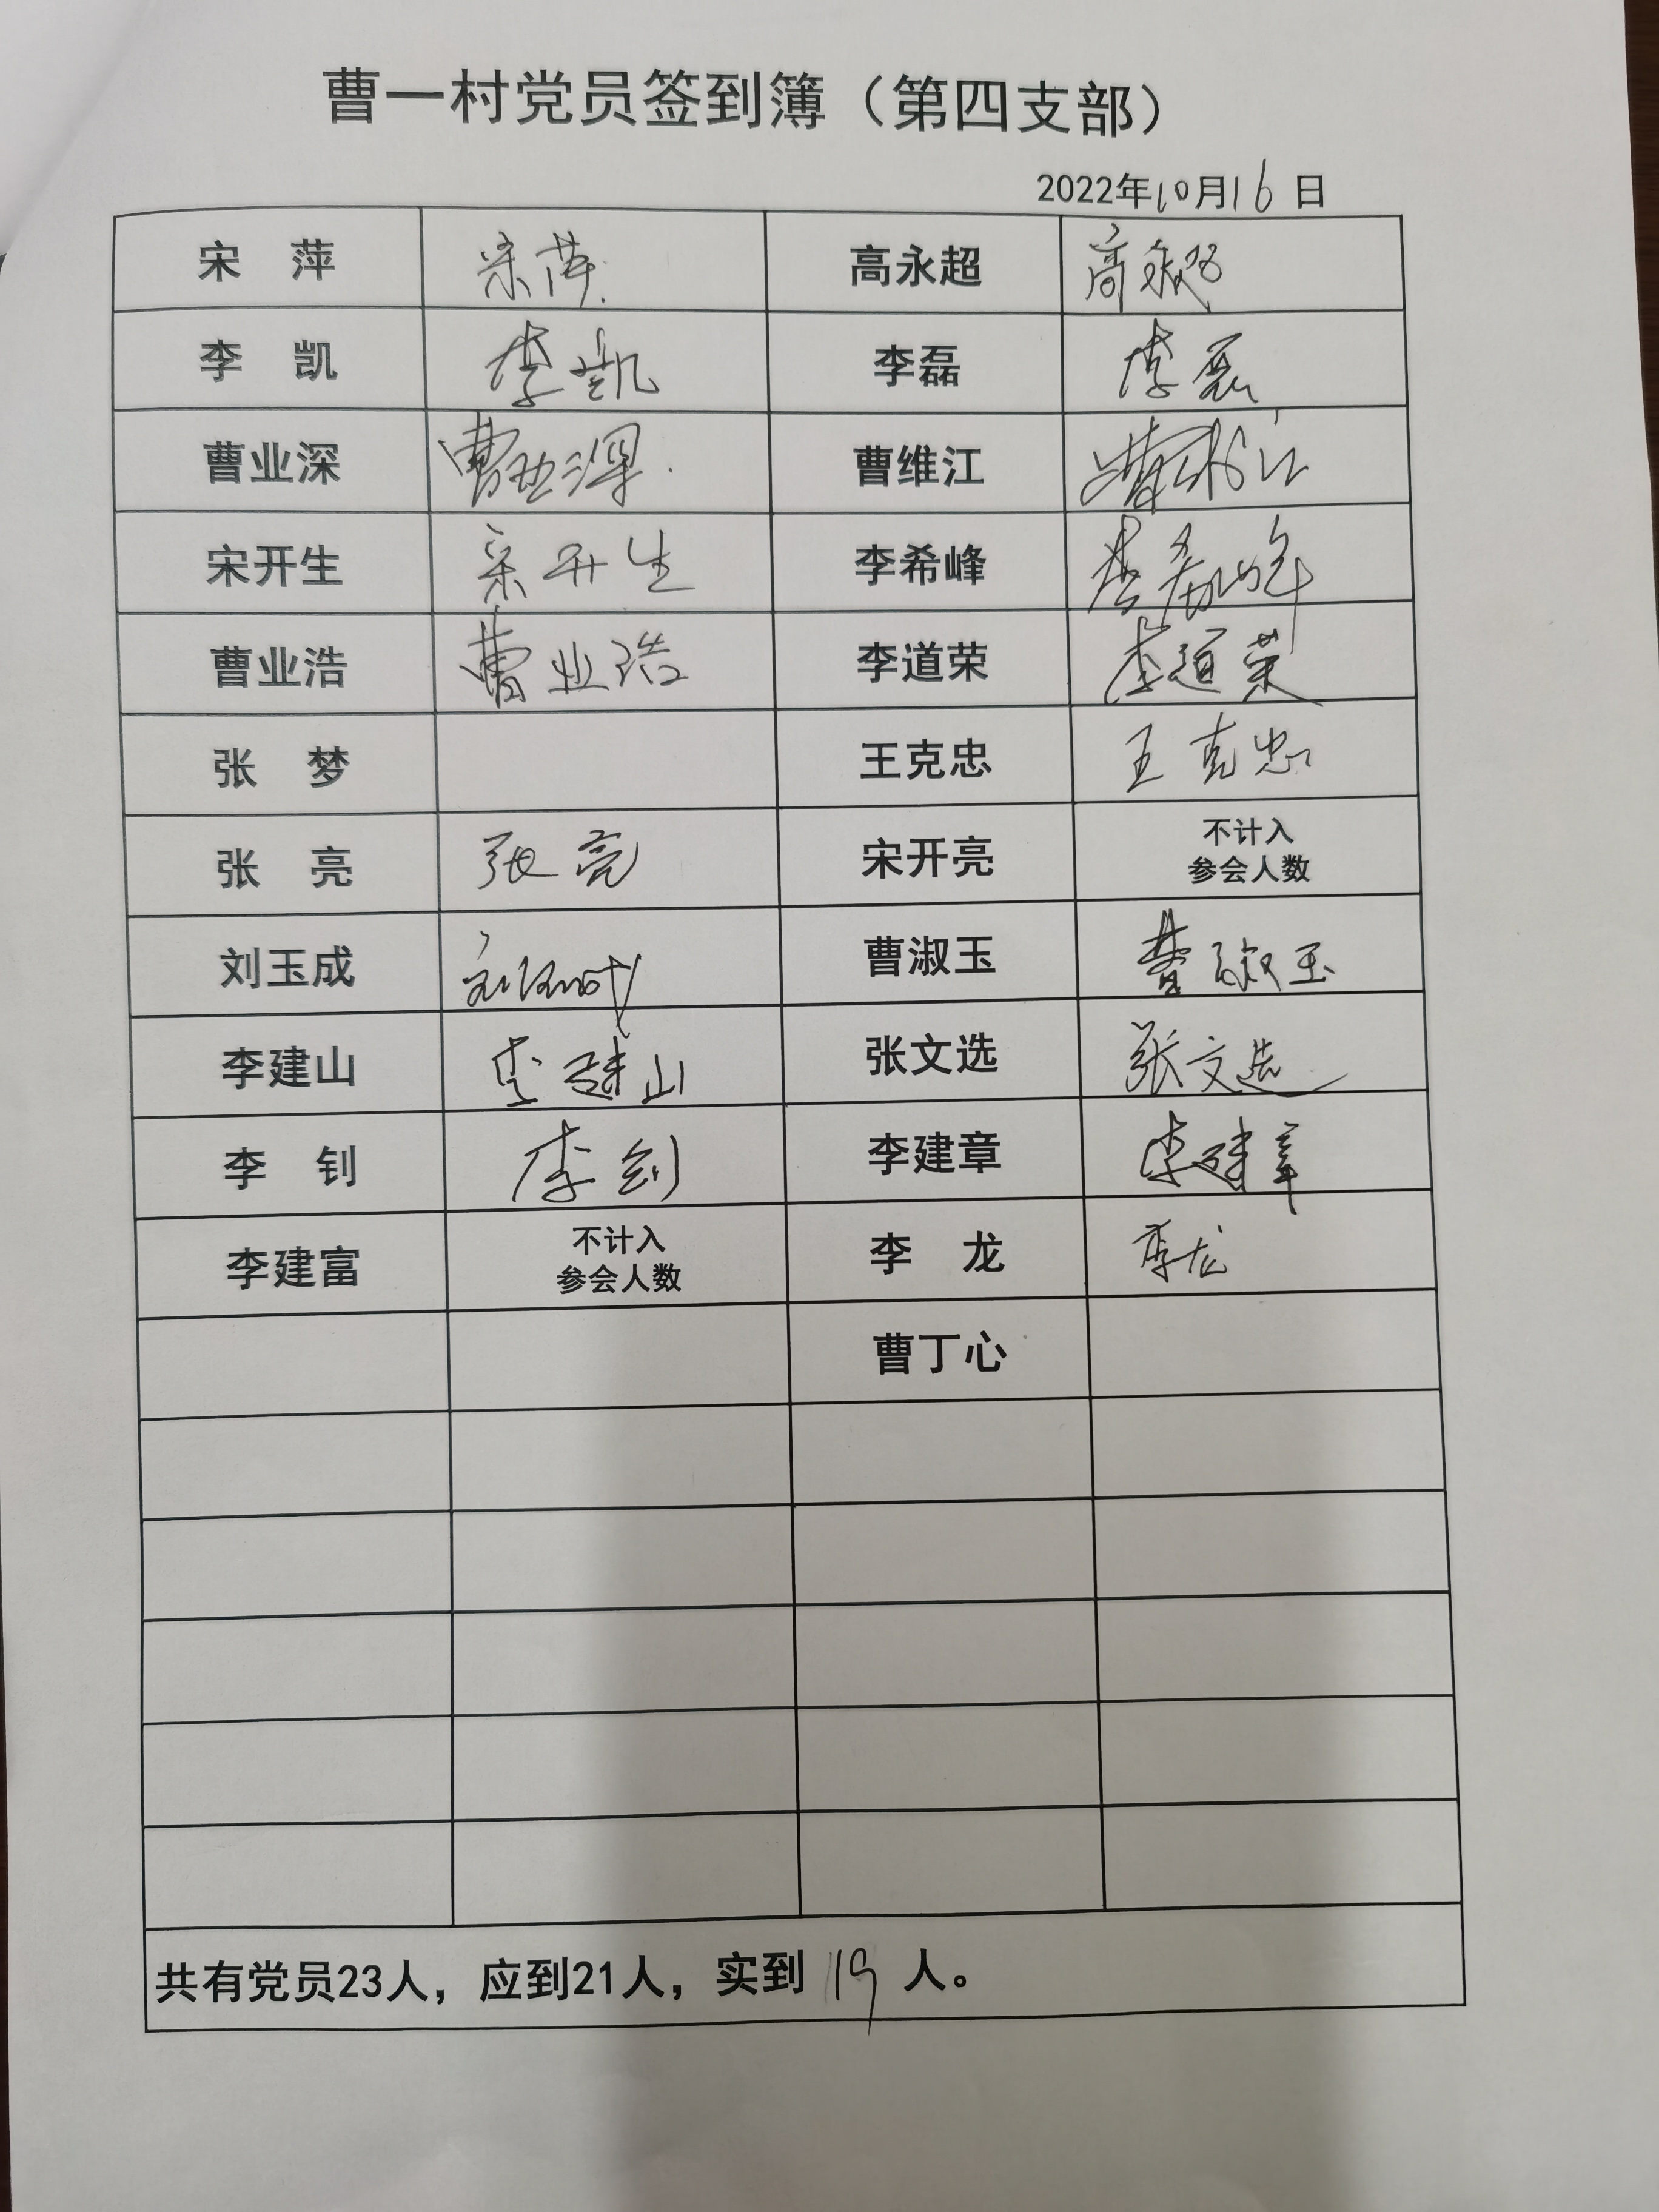 曹一村党员签到簿（第四支部）
2022年10月16日
宋 萍 宋萍 高永超 高永超
李 凯 李凯 李磊 李磊
曹业深 曹业深 曹维江 曹维江
宋开生 宋开生 李希峰 李希峰
曹业浩 曹业浩 李道荣 李道荣
张 梦 王克忠 王克忠
张 亮 张亮 宋开亮 不计入
参会人数
刘玉成 刘玉成 曹淑玉 曹淑玉
李建山 李建山 张文选 张文选
李 钊 李钊 李建章 李建章
李建富 不计入 李 龙 李龙
参会人数
曹丁心
共有党员23人，应到21人，实到19人。